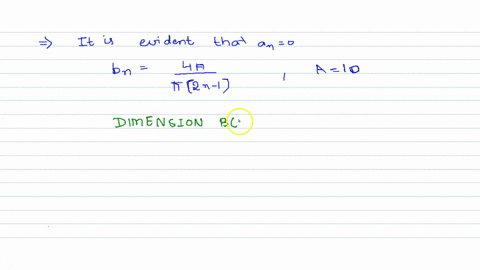 ⇒ It is evident that aₙ=0
bₙ = 4A / π[2n-1] , A=10
DIMENSION B(